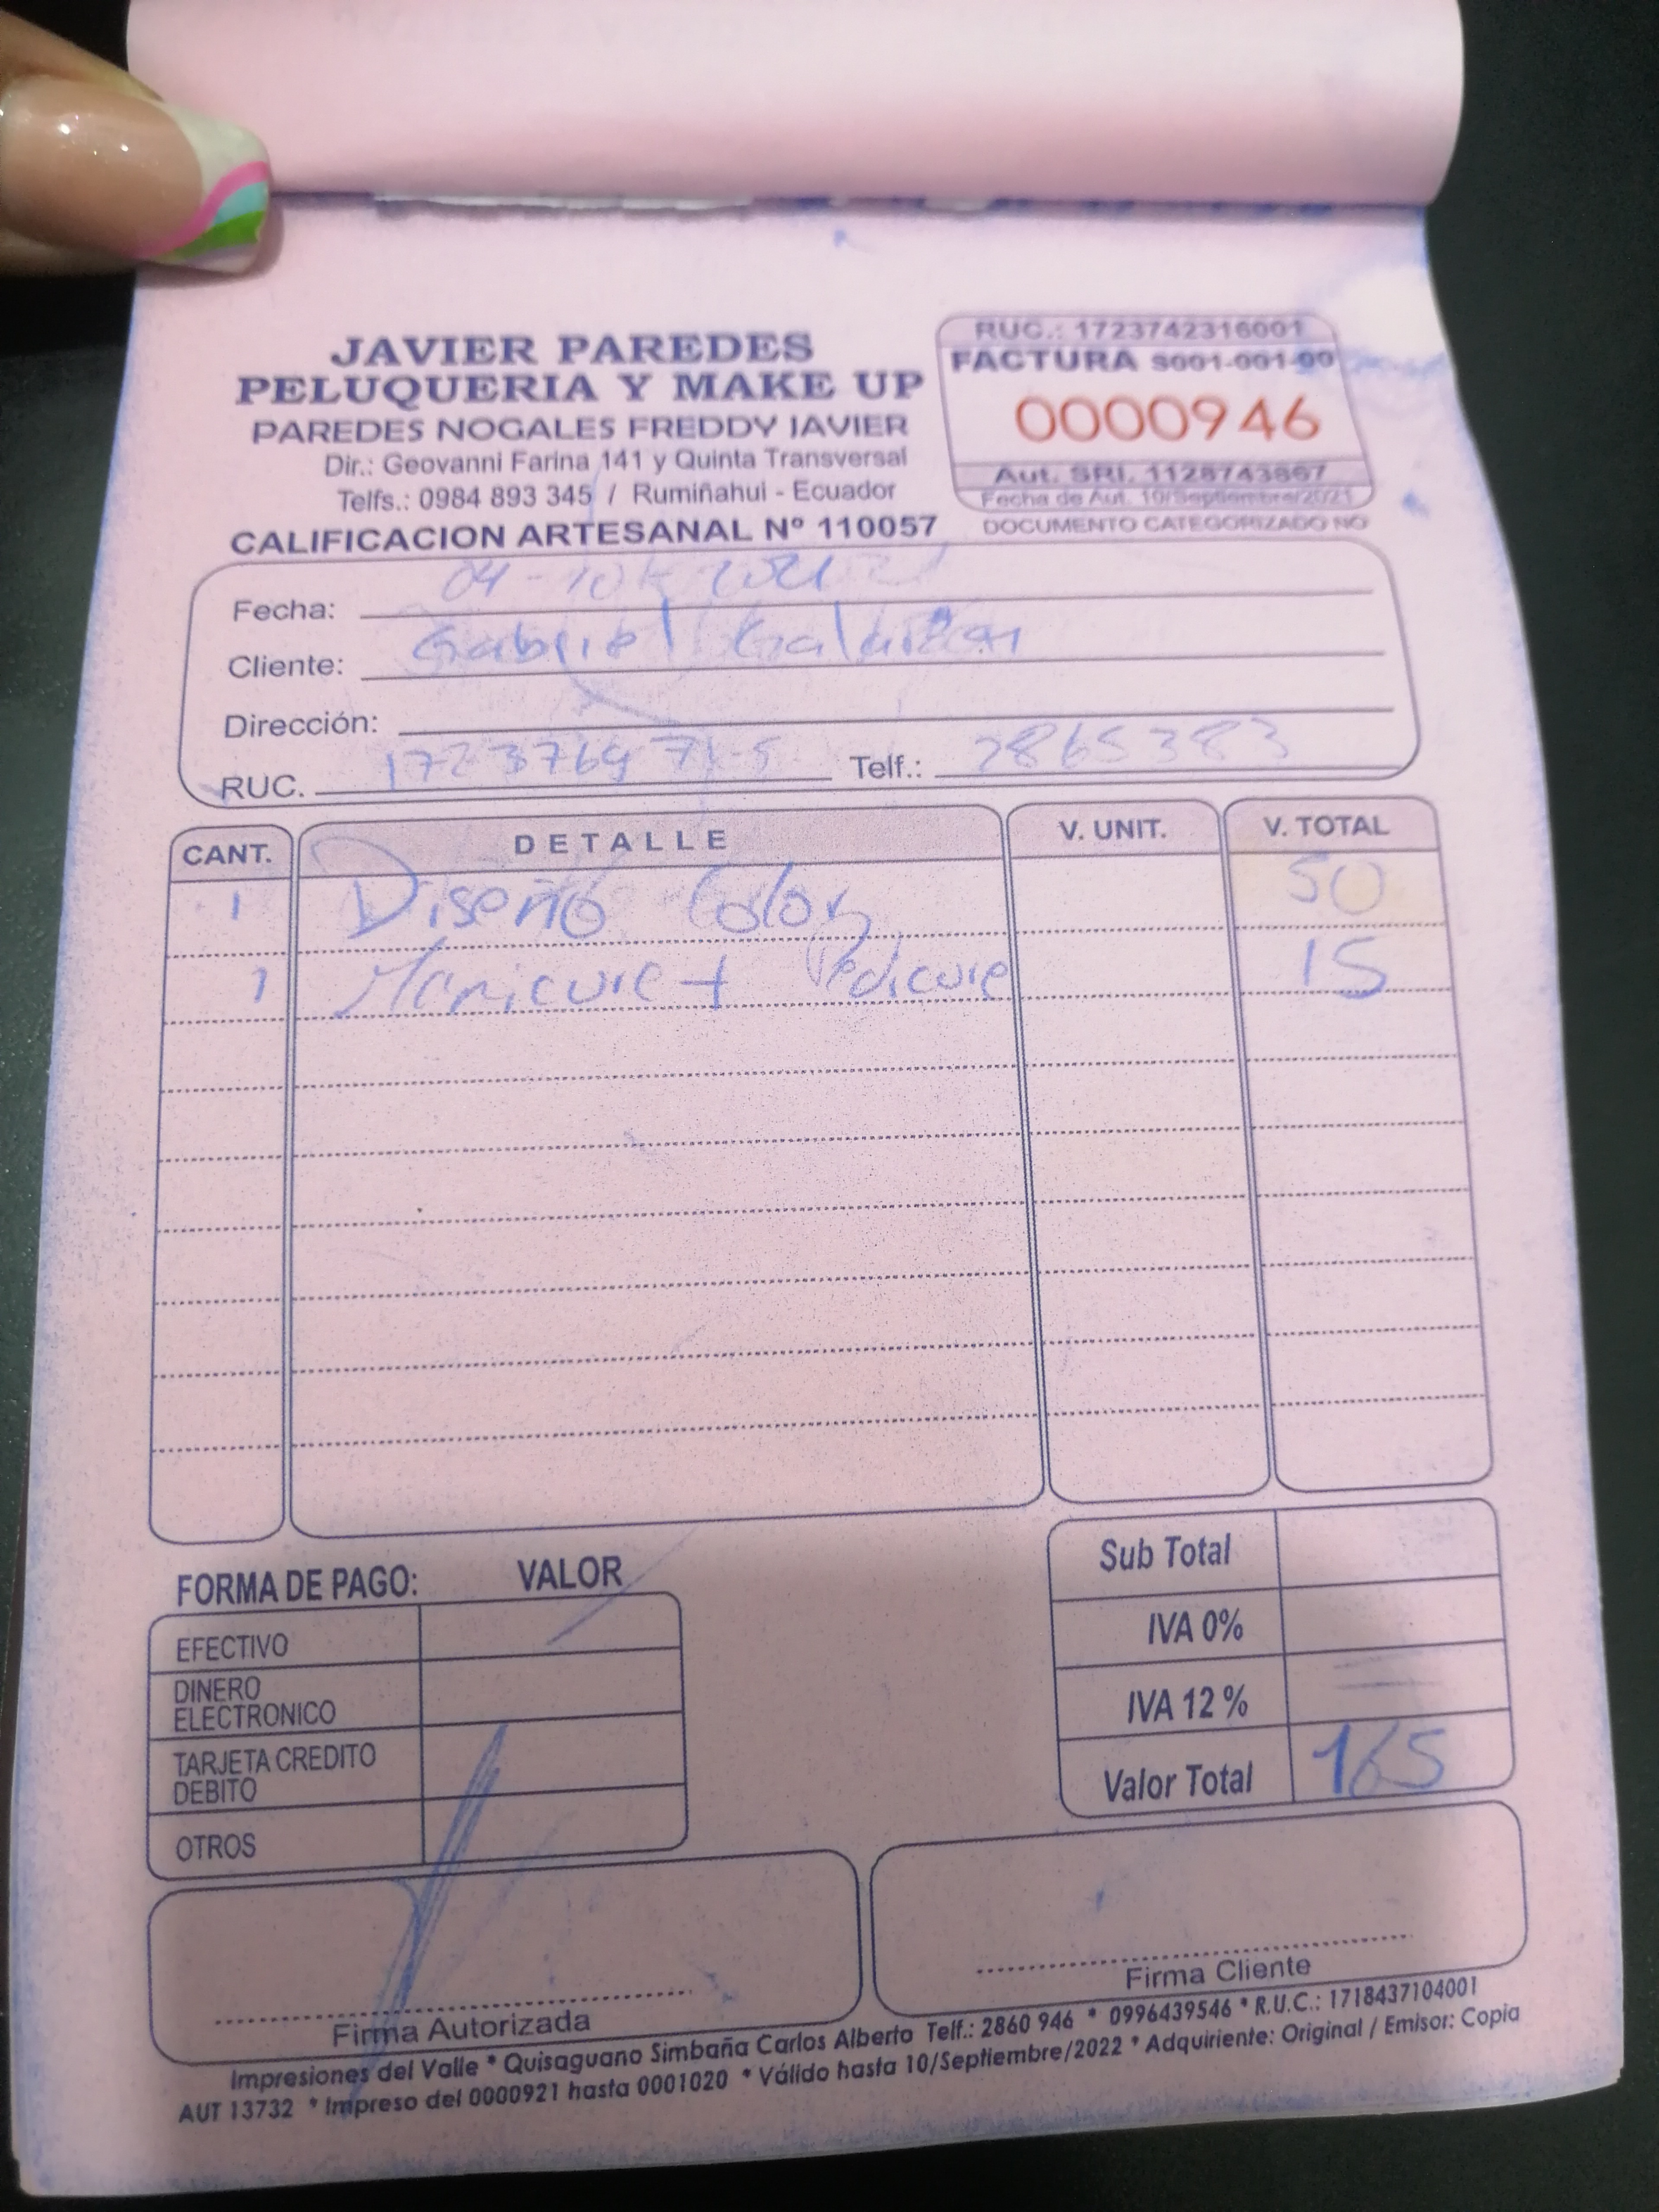 JAVIER PAREDES
PELUQUERIA Y MAKE UP
PAREDES NOGALES FREDDY JAVIER
Dir.: Geovanni Farina 141 y Quinta Transversal
Telfs.: 0984 893 345 / Rumiñahui - Ecuador
CALIFICACION ARTESANAL Nº 110057
RUC.: 1723742316001
FACTURA S001-001-00
0000946
Aut. SRI. 1128743867
Fecha de Aut. 10/Septiembre/2021
DOCUMENTO CATEGORIZADO NO
Fecha: 04-10
Cliente: Gabriel
Dirección:
RUC. Telf.: 2865383
CANT. DETALLE V. UNIT. V. TOTAL
1 Diseño Color 50
1 Manicure + Pedicure 15
FORMA DE PAGO: VALOR
EFECTIVO
DINERO ELECTRONICO
TARJETA CREDITO DEBITO
OTROS
Sub Total
IVA 0%
IVA 12 %
Valor Total 165
Firma Autorizada
Firma Cliente
Impresiones del Valle * Quisaguano Simbaña Carlos Alberto Telf.: 2860 946 * 0996439546 * R.U.C.: 1718437104001
AUT 13732 * Impreso del 0000921 hasta 0001020 * Válido hasta 10/Septiembre/2022 * Adquiriente: Original / Emisor: Copia